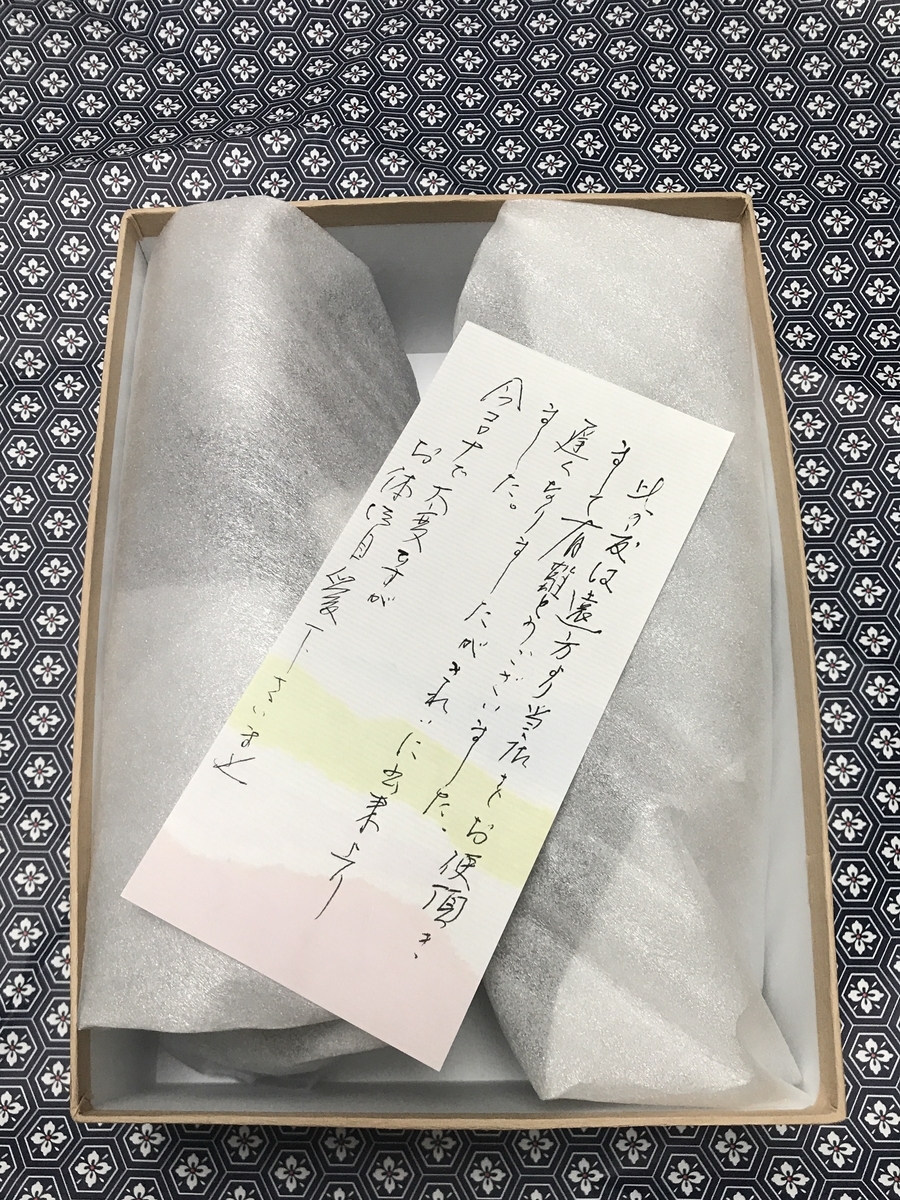 此の度は遠方より当店をお便頂き、
まして有難とうございました、
遅くなりましたがきれいに出来上り
ました。
今コロナで大変ですが
お体御自愛下さいませ